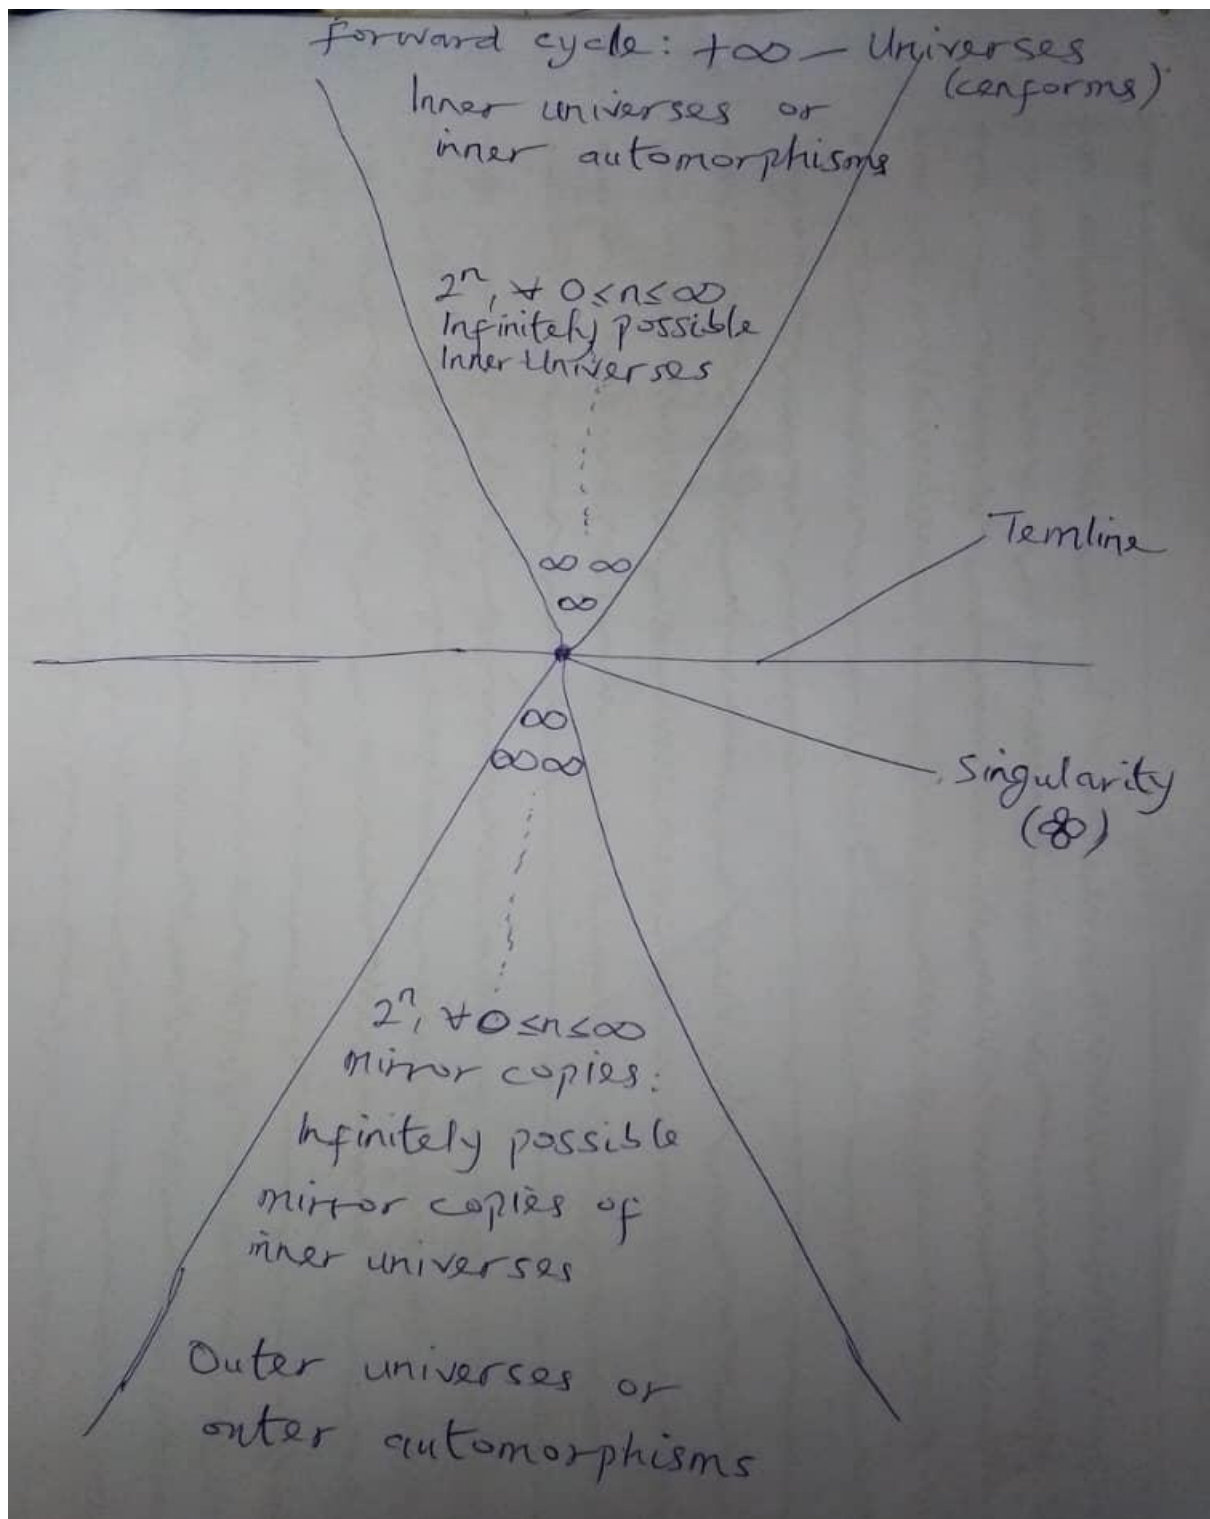 forward cycle: +∞ – Universes
(cenforms)
Inner universes or
inner automorphisms
2ⁿ, ∀ 0≤n≤∞
Infinitely possible
Inner Universes
Temline
∞ ∞
∞
∞
∞ ∞
Singularity
2ⁿ, ∀ 0≤n≤∞
mirror copies:
Infinitely possible
mirror copies of
inner universes
Outer universes or
outer automorphisms